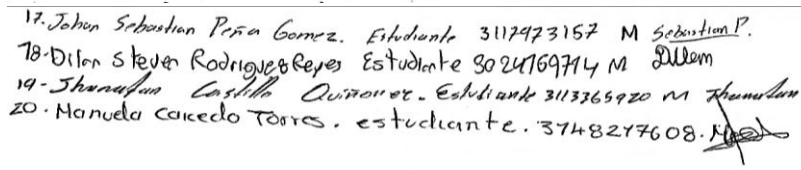 17. Johan Sebastian Peña Gomez. Estudiante 3117973157 M Sebastian P.
18- Dilan Steven Rodriguez Reyes Estudiante 3024769714 M Dilem
19 - Jhonatan Castillo Quiñonez. Estudiante 3113365920 M Jhonatan
20. Manuela Caicedo Torres. estudiante. 3148277608.